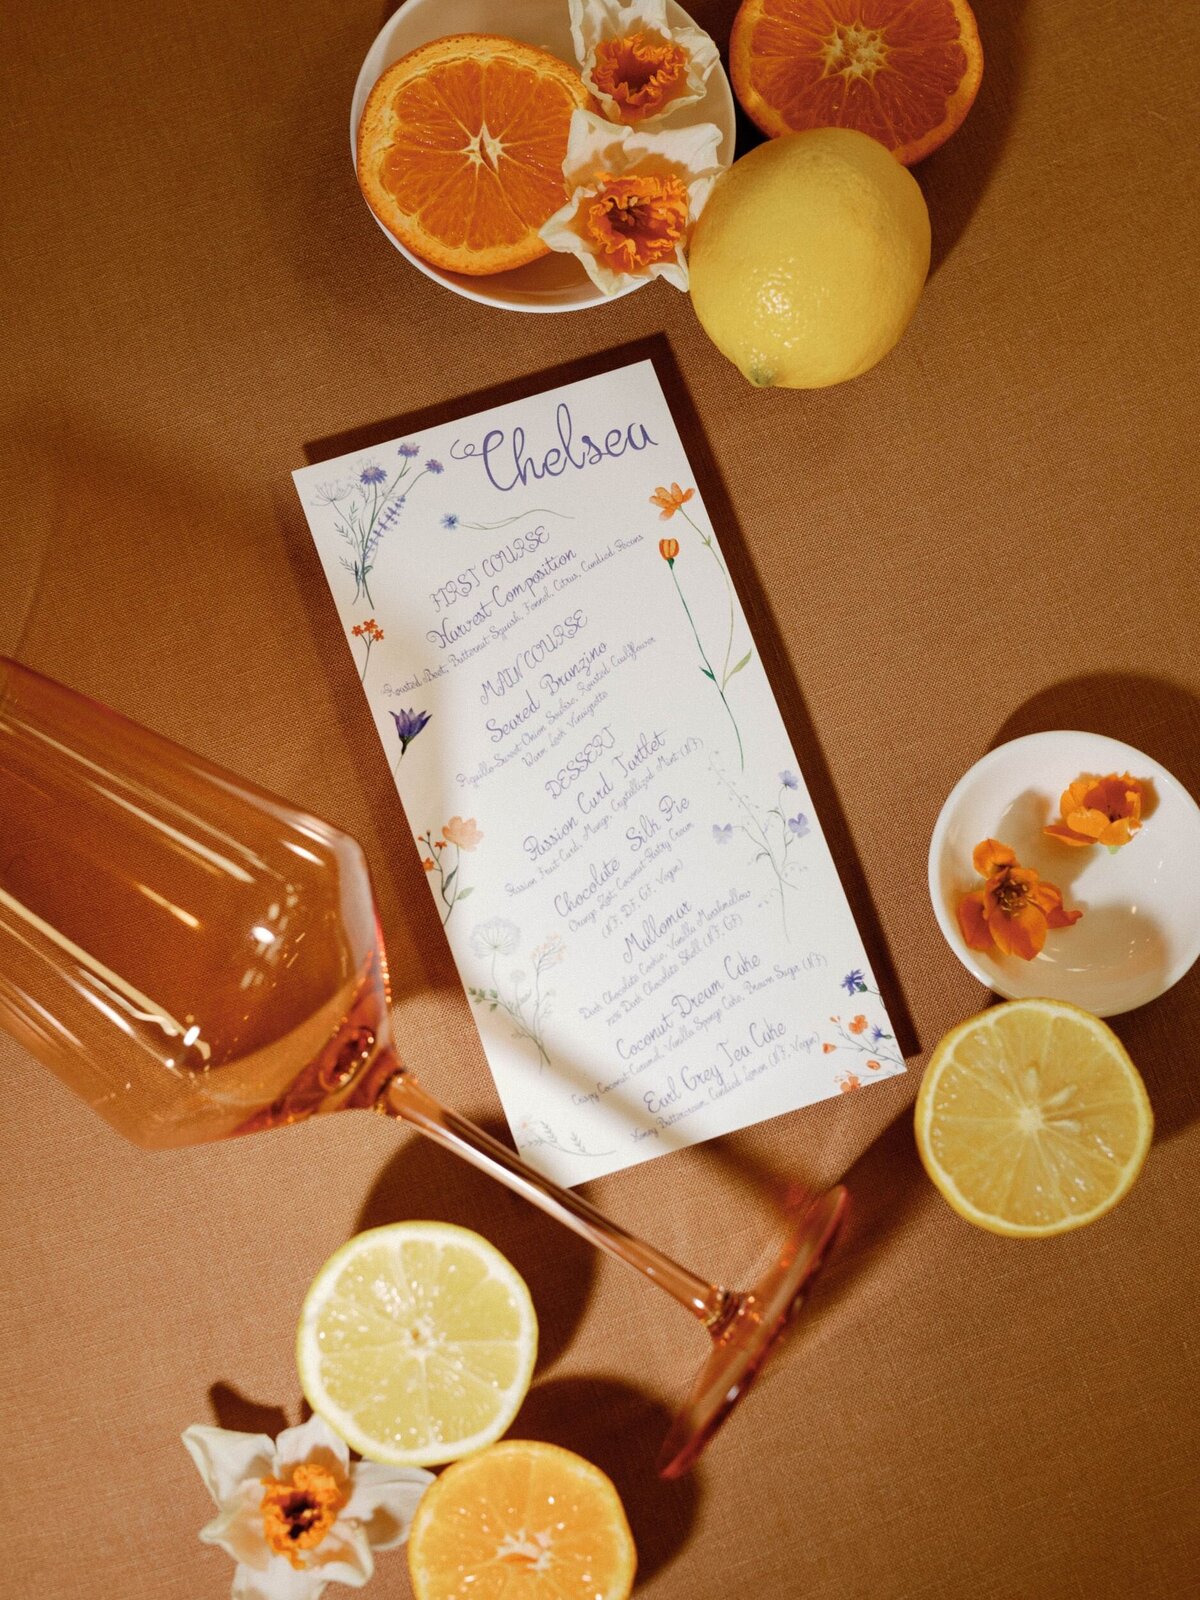 Chelsea
FIRST COURSE
Harvest Composition
Roasted Beet, Butternut Squash, Fennel, Citrus, Candied Pecans
MAIN COURSE
Seared Branzino
Piquillo-Sweet Onion Soubise, Roasted Cauliflower
Warm Leek Vinaigrette
DESSERT
Passion Curd Tartlet
Passion Fruit Curd, Mango, Crystallized Mint (NF)
Chocolate Silk Pie
Orange Zest, Coconut Pastry Cream
(NF, DF, GF, Vegan)
Mallomar
Dark Chocolate Cookie, Vanilla Marshmallow
72% Dark Chocolate Shell (NF, GF)
Coconut Dream Cake
Crispy Coconut Caramel, Vanilla Sponge Cake, Brown Sugar (NF)
Earl Grey Tea Cake
Honey Buttercream, Candied Lemon (NF, Vegan)